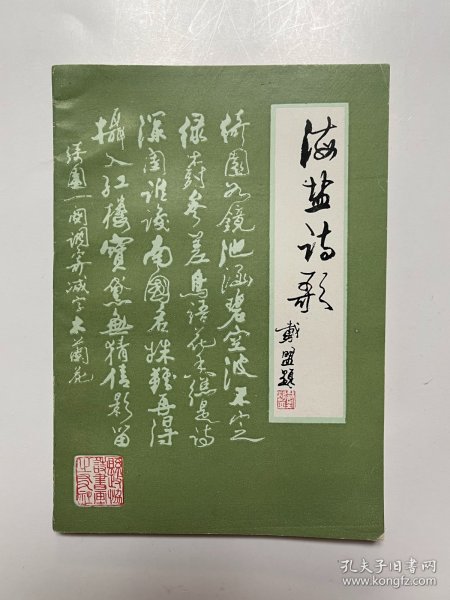 海盐诗歌
戴盟题
绮园如镜池涵碧空波不定
绿树参差鸟语花香总是诗
深闺谁设南国名姝难再得
摄入红楼宝黛无猜倩影留
绮园一阕调寄减字木兰花
孔夫子旧书网
www.kongfz.com